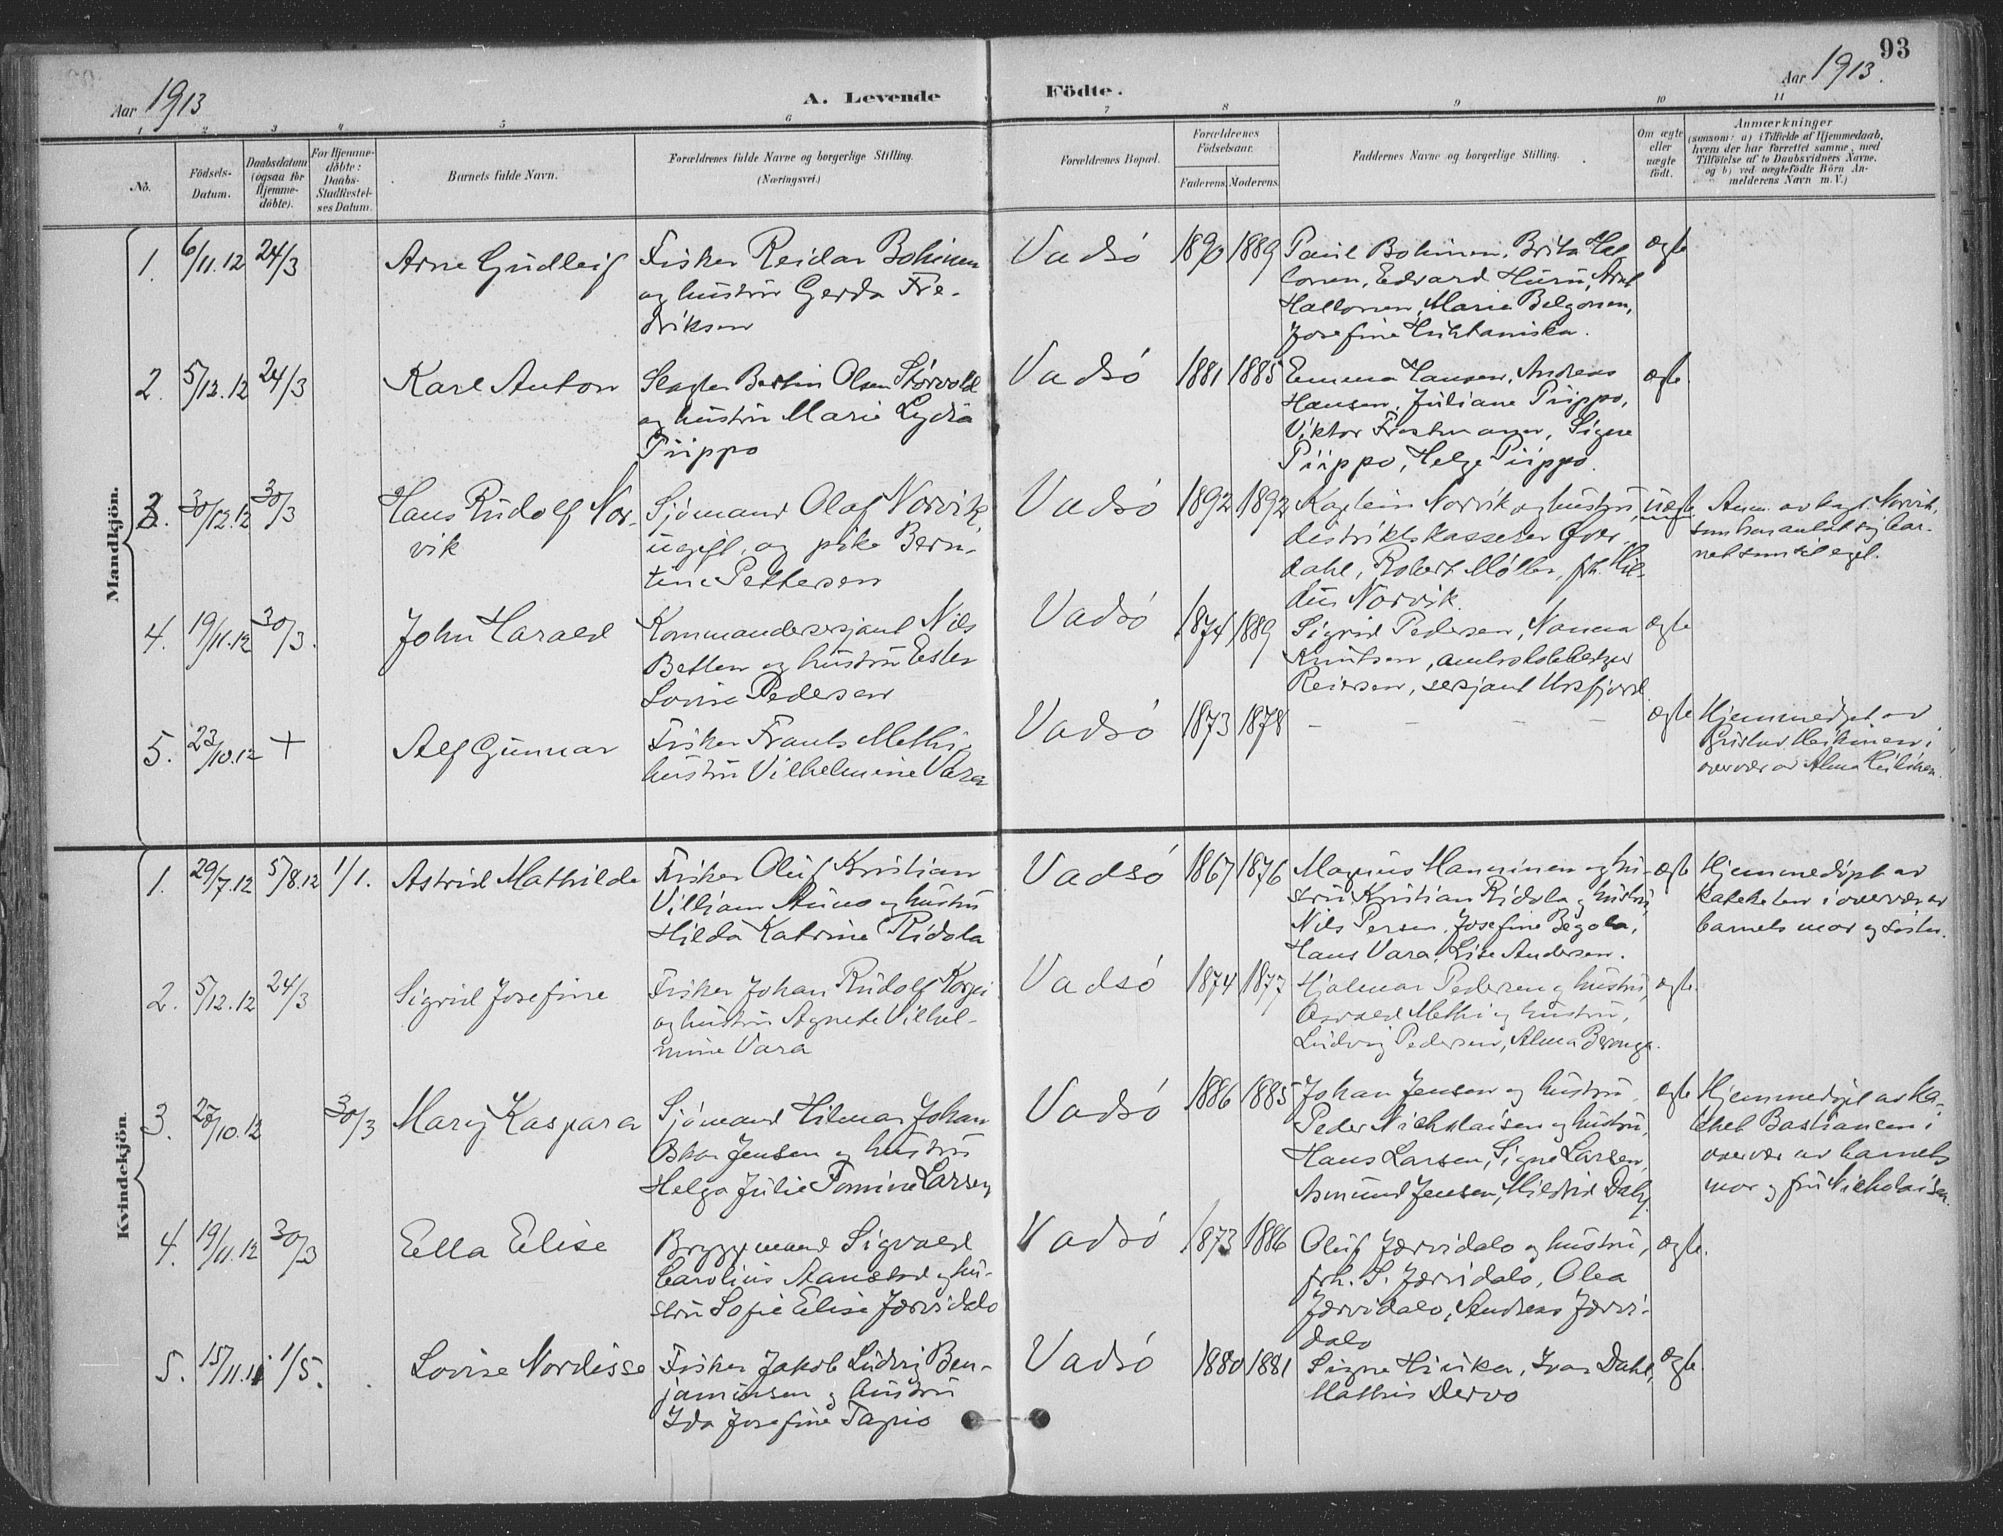 93
Aar 1913
A. Levende
Födte.
Aar 1913.
1 2 3 4 5 6 7 8 9 10 11
No.
Födsels-
Datum.
Daabsdatum
(ogsaa for
Hjemme-
döbte).
For Hjemme-
döbte:
Daabs-
Stadfæstel-
ses Datum.
Barnets fulde Navn.
Forældrenes fulde Navne og borgerlige Stilling.
(Næringsvei.)
Forældrenes Bopæl.
Forældrenes
Födselsaar.
Faderens. Moderens.
Faddernes Navne og borgerlige Stilling.
Om ægte
eller
uægte
födt.
Anmærkninger
(saasom: a) i Tilfælde af Hjemmedaab,
hvem der har forrettet samme, med
Tilföielse af to Daabsvidners Navne,
og b) ved uægtefödte Börn An-
melderens Navn m. V.)
Mandkjön.
1. 6/11.12 24/3 Arne Gudleif
Fisker Reidar Bohinen
og hustru Gerda Fre-
driksen
Vadsö 1890 1889
Paul Bohinen, Brita
Edvard Huru,
Marie
Josefine
ægte
2. 5/12.12 24/3 Karl Anton
Bertin Olsen Störvold
og hustru Marie Lydia
Piippo
Vadsö 1881 1885
Emma Hansen, Andreas
Hansen, Juliane Piippo,
Viktor Signe
Piippo, Helge Piippo.
ægte
3. 30/12.12 30/3 Hans Rudolf Nor-
vik
Sjömand Olaf Norvik,
ugift, og pike Bern-
tine Pettersen
Vadsö 1892 1892
Kaptein Norvik og hustru,
distriktskasserer Över-
dahl, Robert Möller, frk. Hil-
dur Norvik.
uægte
Anm. av kapt. Norvik,
som har antat sig bar-
net som sit eget.
4. 19/11.12 30/3. John Harald
Kommandersersjant Nils
Betten og hustru Ester
Lovise Pedersen
Vadsö 1874 1889
Sigrid Pedersen, Nanna
Knutsen,
Reiersen, sersjant
ægte
5. 23/10.12 + Alf Gunnar
Fisker Frants Methi,
hustru Vilhelmine Vara
Vadsö 1873 1878 – – – –
ægte
Hjemmedöpt av
i
overvær av Alma Heikinen.
Kvindekjön.
1. 29/7.12 5/8.12 1/1. Astrid Mathilde
Fisker Oluf Kristian
Villiam Auno og hustru
Hilda Katrine Ridola
Vadsö 1867 1876
Magnus Hanninen og hu-
stru Kristian Ridola og hustru,
Nils Persen, Josefine Begola,
Hans Vara, Lise Andersen.
ægte
Hjemmedöpt av
kateketen i overvær av
barnets mor og söster.
2. 5/12.12 24/3 Sigrid Josefine
Fisker Johan Rudolf Korpi
og hustru Agnete Vilhel-
mine Vara
Vadsö 1874 1877
Hjalmar Pedersen og hustru,
Osvald Methi og hustru,
Ludvig Pedersen, Alma
ægte.
3. 27/10.12 30/3 Mary Kaspara
Sjömand Hilmar Johan
Oskar Jensen og hustru
Helga Julie Tomine Larsen
Vadsö 1886 1885
Johan Jensen og hustru,
Peder Nicholaisen og hustru,
Hans Larsen, Signe Larsen,
Asmund Jensen, Mildrid Dahl.
ægte
Hjemmedöpt av ka-
teket Bastiansen i
overvær av barnets
mor og fru Nicholaisen.
4. 19/11.12 30/3 Ella Elise
Bryggemand Sigvald
Carolius og hu-
stru Sofie Elise Jærvidalo
Vadsö 1873 1886
Oluf Jærvidalo og hustru,
frk. S. Jærvidalo, Olea
Jærvidalo, Andreas Jærvi-
dalo
ægte.
5. 15/11.11 1/5. Lovise Nordisse
Fisker Jakob Ludvig Ben-
jaminsen og hustru
Ida Josefine Tapio
Vadsö 1880 1881
Signe Ivar Dahl,
Mathis Dervo
ægte.